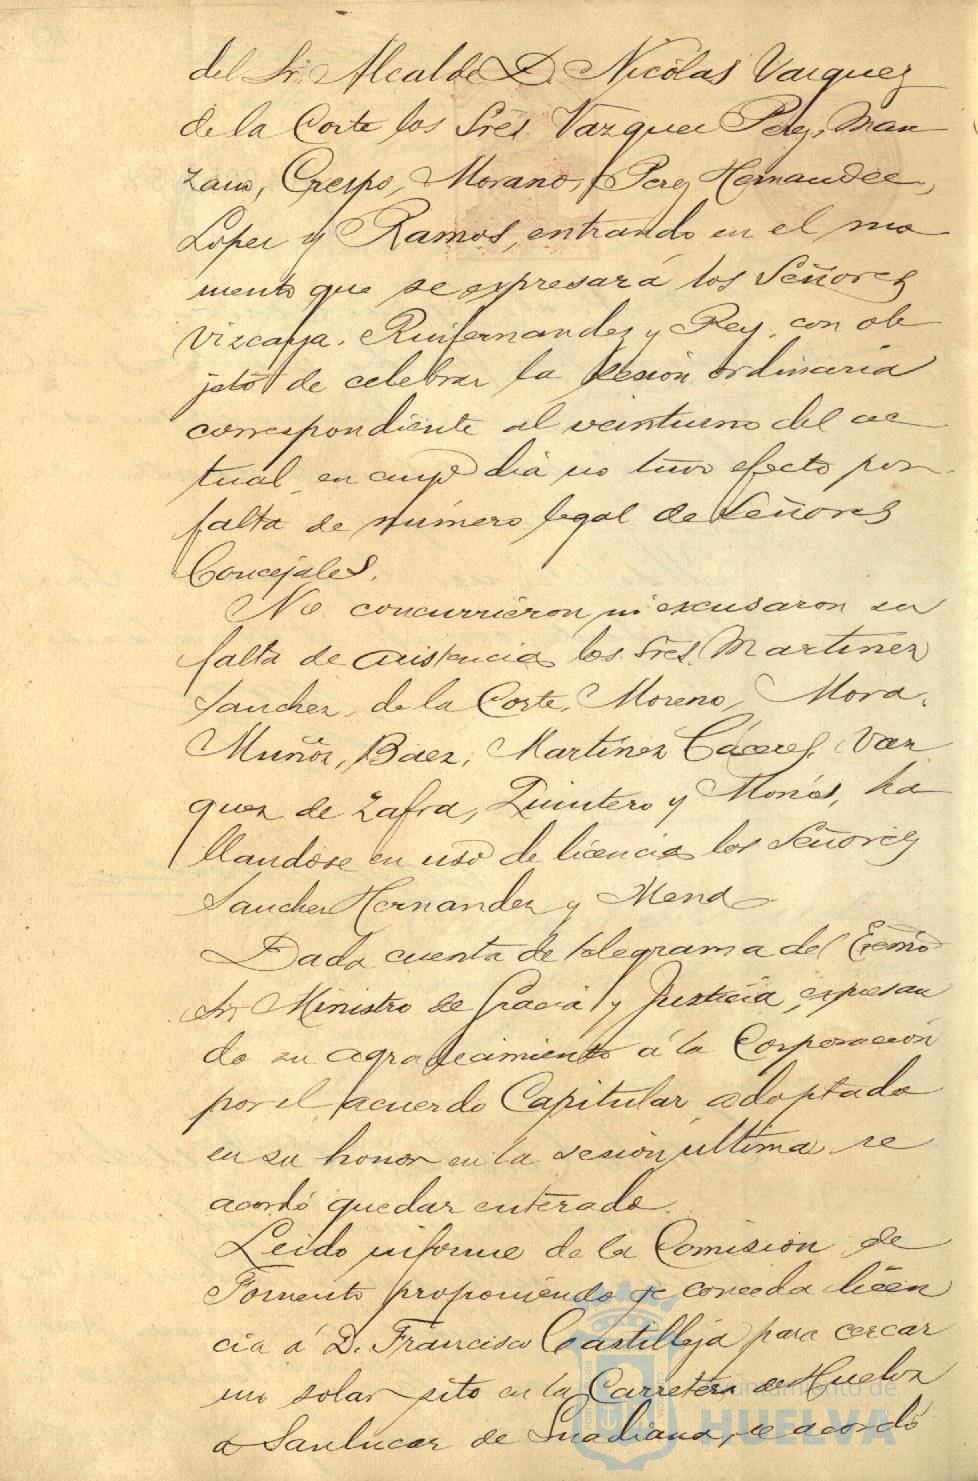 del Sr. Alcalde D. Nicolas Vazquez
de la Corte los Sres. Vazquez Perez, Man
zano, Crespo, Morano, Perez Hernandez,
Lopez y Ramos, entrando en el mo
mento que se expresará los Señores
Vizcaya, Ruifernandez y Rey, con ob
jeto de celebrar la sesión ordinaria
correspondiente al veintiuno del ac
tual, en cuyo dia no tuvo efecto por
falta de número legal de Señores
Concejales.
No concurrieron ni excusaron su
falta de asistencia los Sres. Martinez
Sanchez, de la Corte, Moreno, Mora,
Muñoz, Baez, Martinez Cáceres, Vaz
quez de Zafra, Quintero y Monís, ha
llandose en uso de licencia los Señores
Sanchez Hernandez y Mena
Dada cuenta de telegrama del Excmo
Sr. Ministro de Gracia y Justicia, expresan
do su agradecimiento á la Corporación
por el acuerdo Capitular adoptado
en su honor en la sesión última, se
acordó quedar enterado.
Leido informe de la Comision de
Fomento proponiendo se conceda licen
cia á D. Francisco Castilleja para cercar
un solar sito en la Carretera de Huelva
a Sanlucar de Guadiana, se acordó
Ayuntamiento de
HUELVA